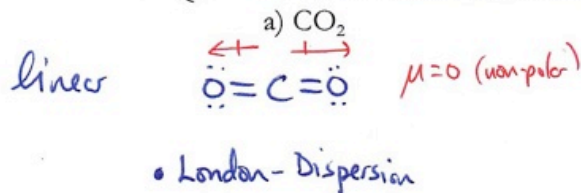 a) CO₂
linear :O=C=O: μ=0 (non-polar)
• London-Dispersion